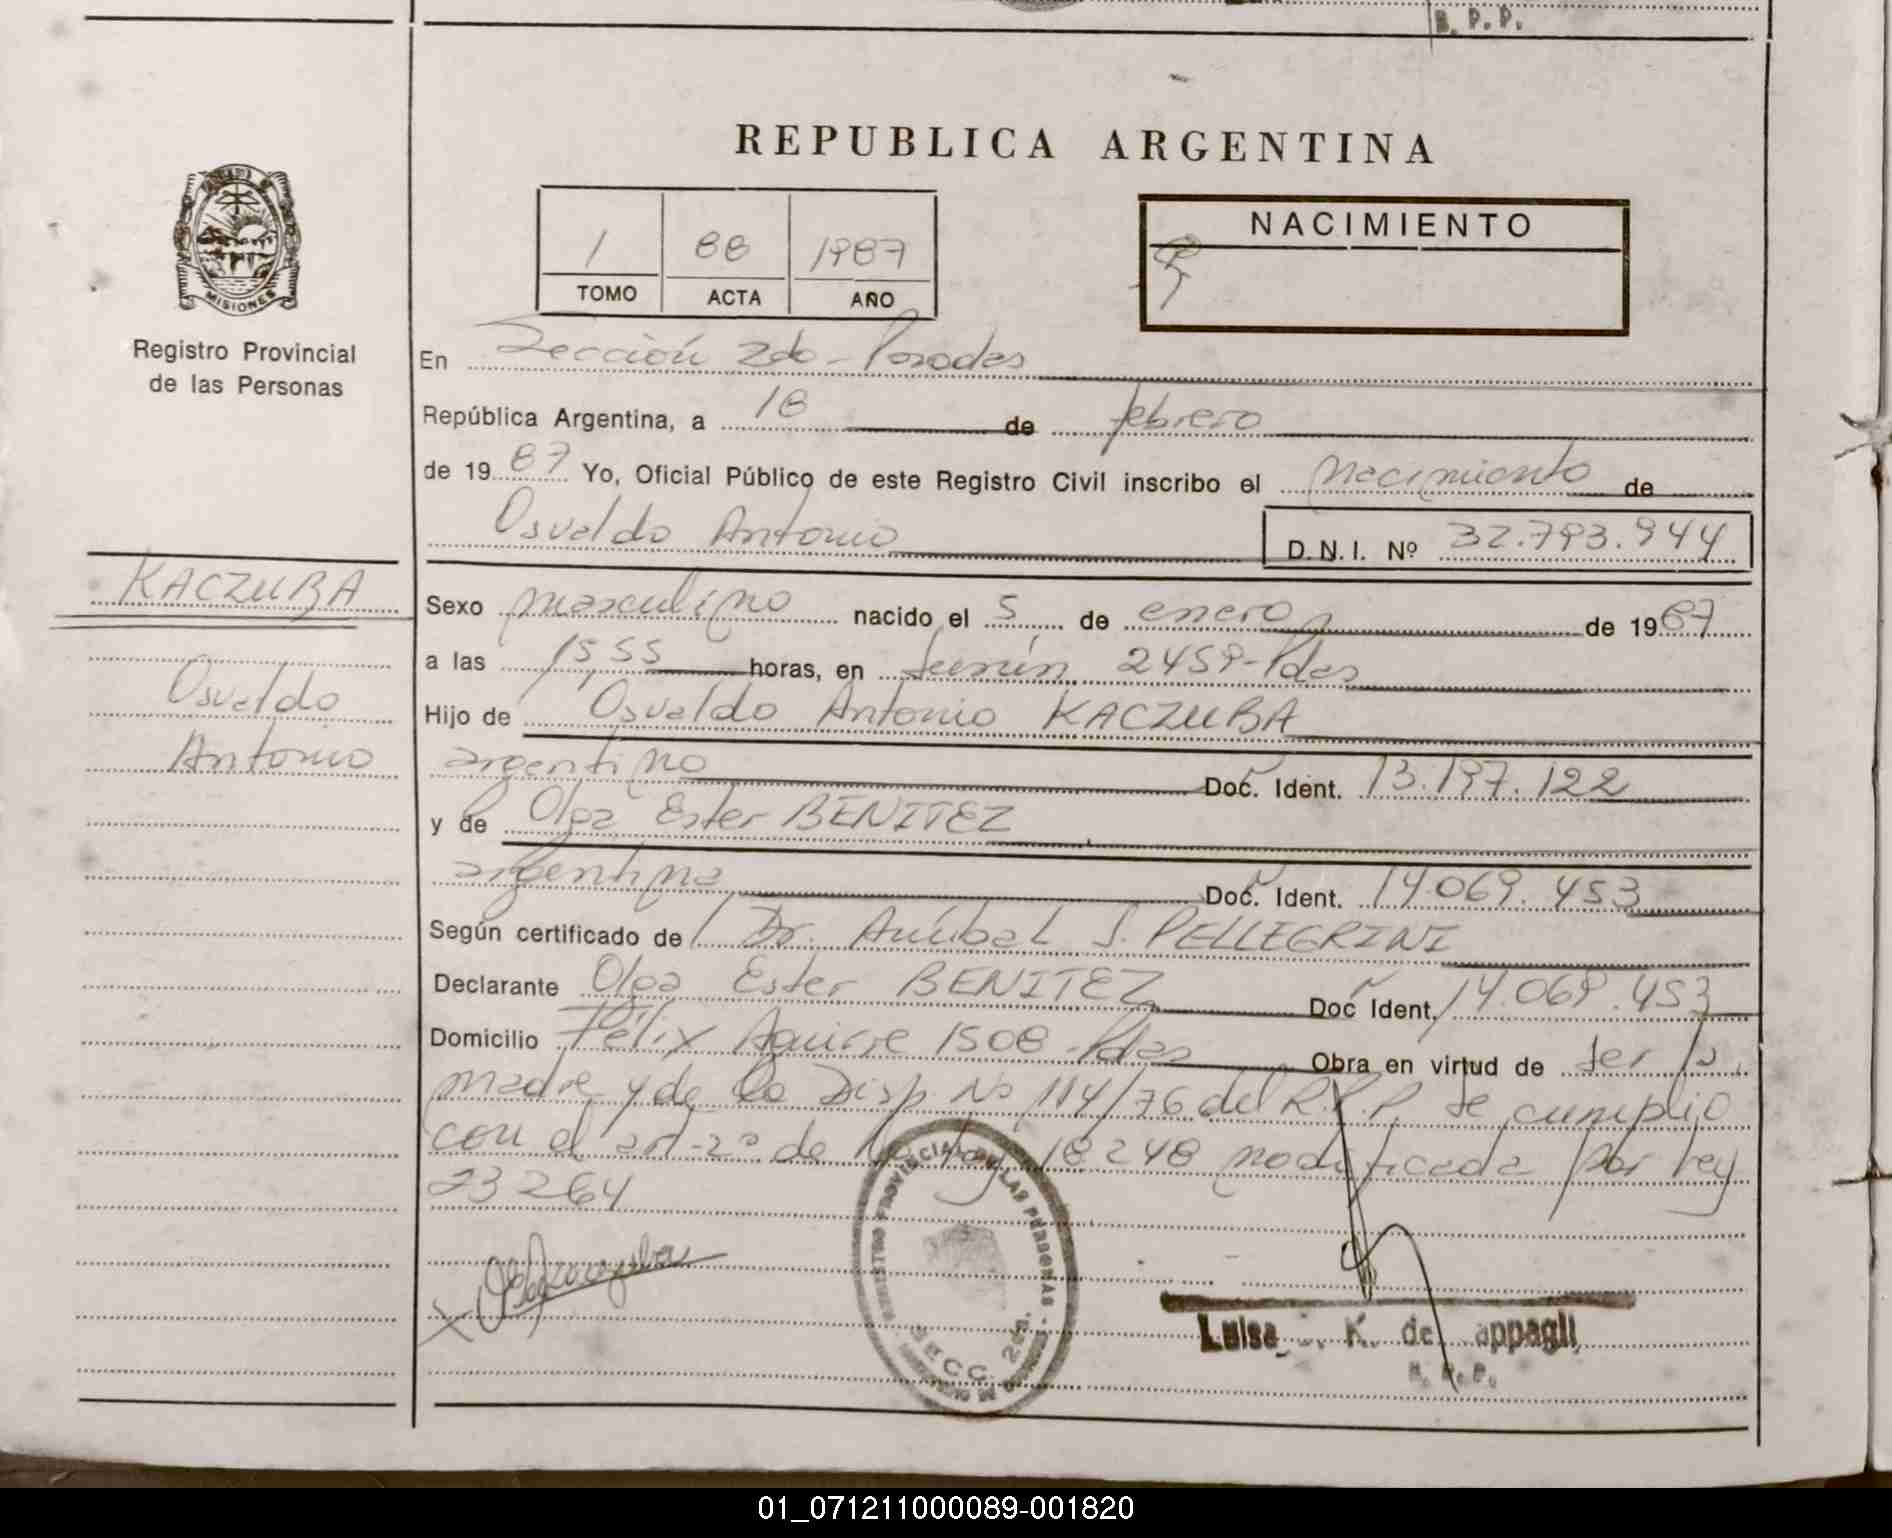 B. P. P.
REPUBLICA ARGENTINA
MISIONES
Registro Provincial
de las Personas
1 88 1987
TOMO ACTA AÑO
NACIMIENTO
En Sección 2da - Posadas
República Argentina, a 18 de febrero
de 19 87 Yo, Oficial Público de este Registro Civil inscribo el nacimiento de
Osvaldo Antonio D.N.I. Nº 32.793.944
KACZUBA
Osvaldo
Antonio
Sexo masculino nacido el 5 de enero de 19 87
a las 15,55 horas, en Junín 2459 - Pdas
Hijo de Osvaldo Antonio KACZUBA
argentino Doc. Ident. 13.197.122
y de Olga Ester BENITEZ
argentina Doc. Ident. 14.069.453
Según certificado de Dr. Aníbal S. PELLEGRINI
Declarante Olga Ester BENITEZ Doc Ident. 14.069.453
Domicilio Félix Aguirre 1508 - Pdas Obra en virtud de ser la
madre y de la Disp. No 114/76 del R.P.P. Se cumplió
con el art-2º de la ley 18248 modificada por ley
23264
REGISTRO PROVINCIAL DE LAS PERSONAS
SECC. 2da.
Luisa K. de appagli
R. P. P.
01_071211000089-001820